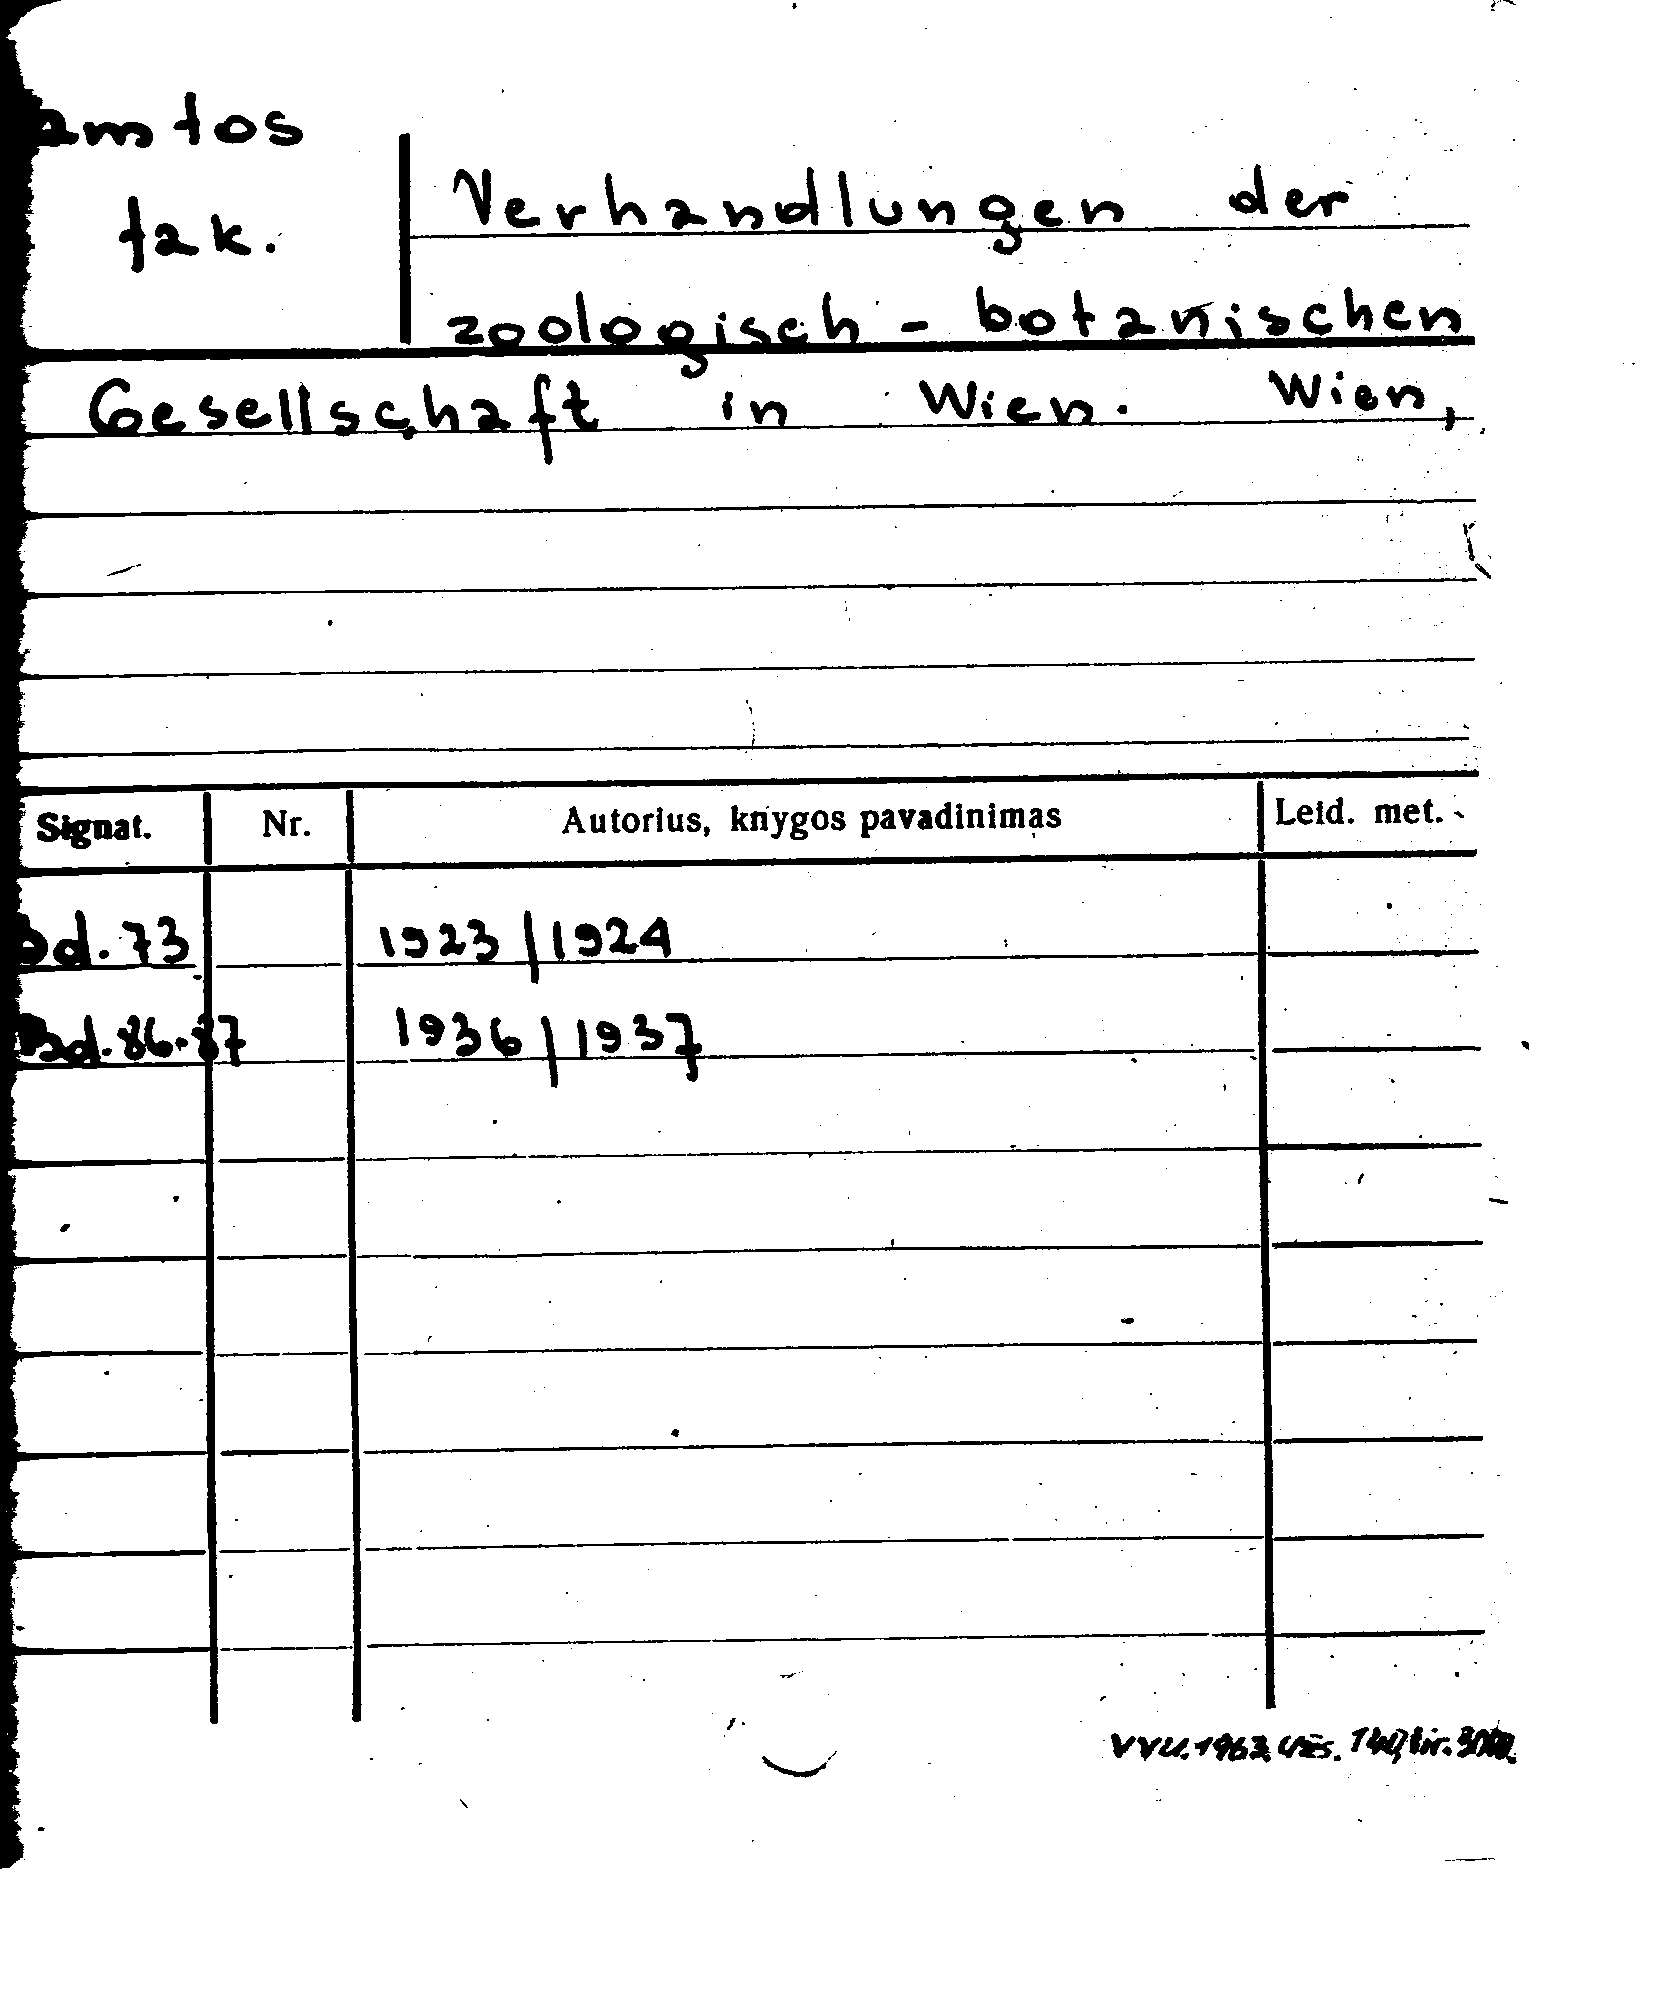 amtos
fak.
Verhandlungen der
zoologisch - botanischen
Gesellschaft in Wien. Wien,
Signat. Nr. Autorius, knygos pavadinimas Leid. met.
Bd. 73 1923 | 1924
Bd. 86-87 1936 | 1937
VVU. 1963. Užs. 140, tir. 3000.